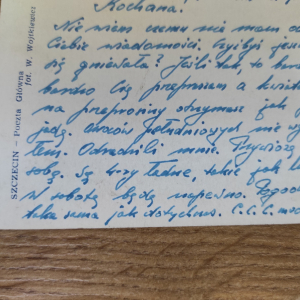 Kochana.
Nie wiem czemu nie mam od
Ciebie wiadomości. Czyżbyś
się gniewała? Jeśli tak, to
bardzo Cię przepraszam a
na przeprosiny otrzymasz jak
jadę. Owoców południowych nie
łem. Odradzili mnie.
sobą. Są trzy ładne, takie jak
W sobotę będę napewno.
taka sama jak dotychczas. C.C.C.
SZCZECIN — Poczta Główna
fot. W. Wojtkiewicz